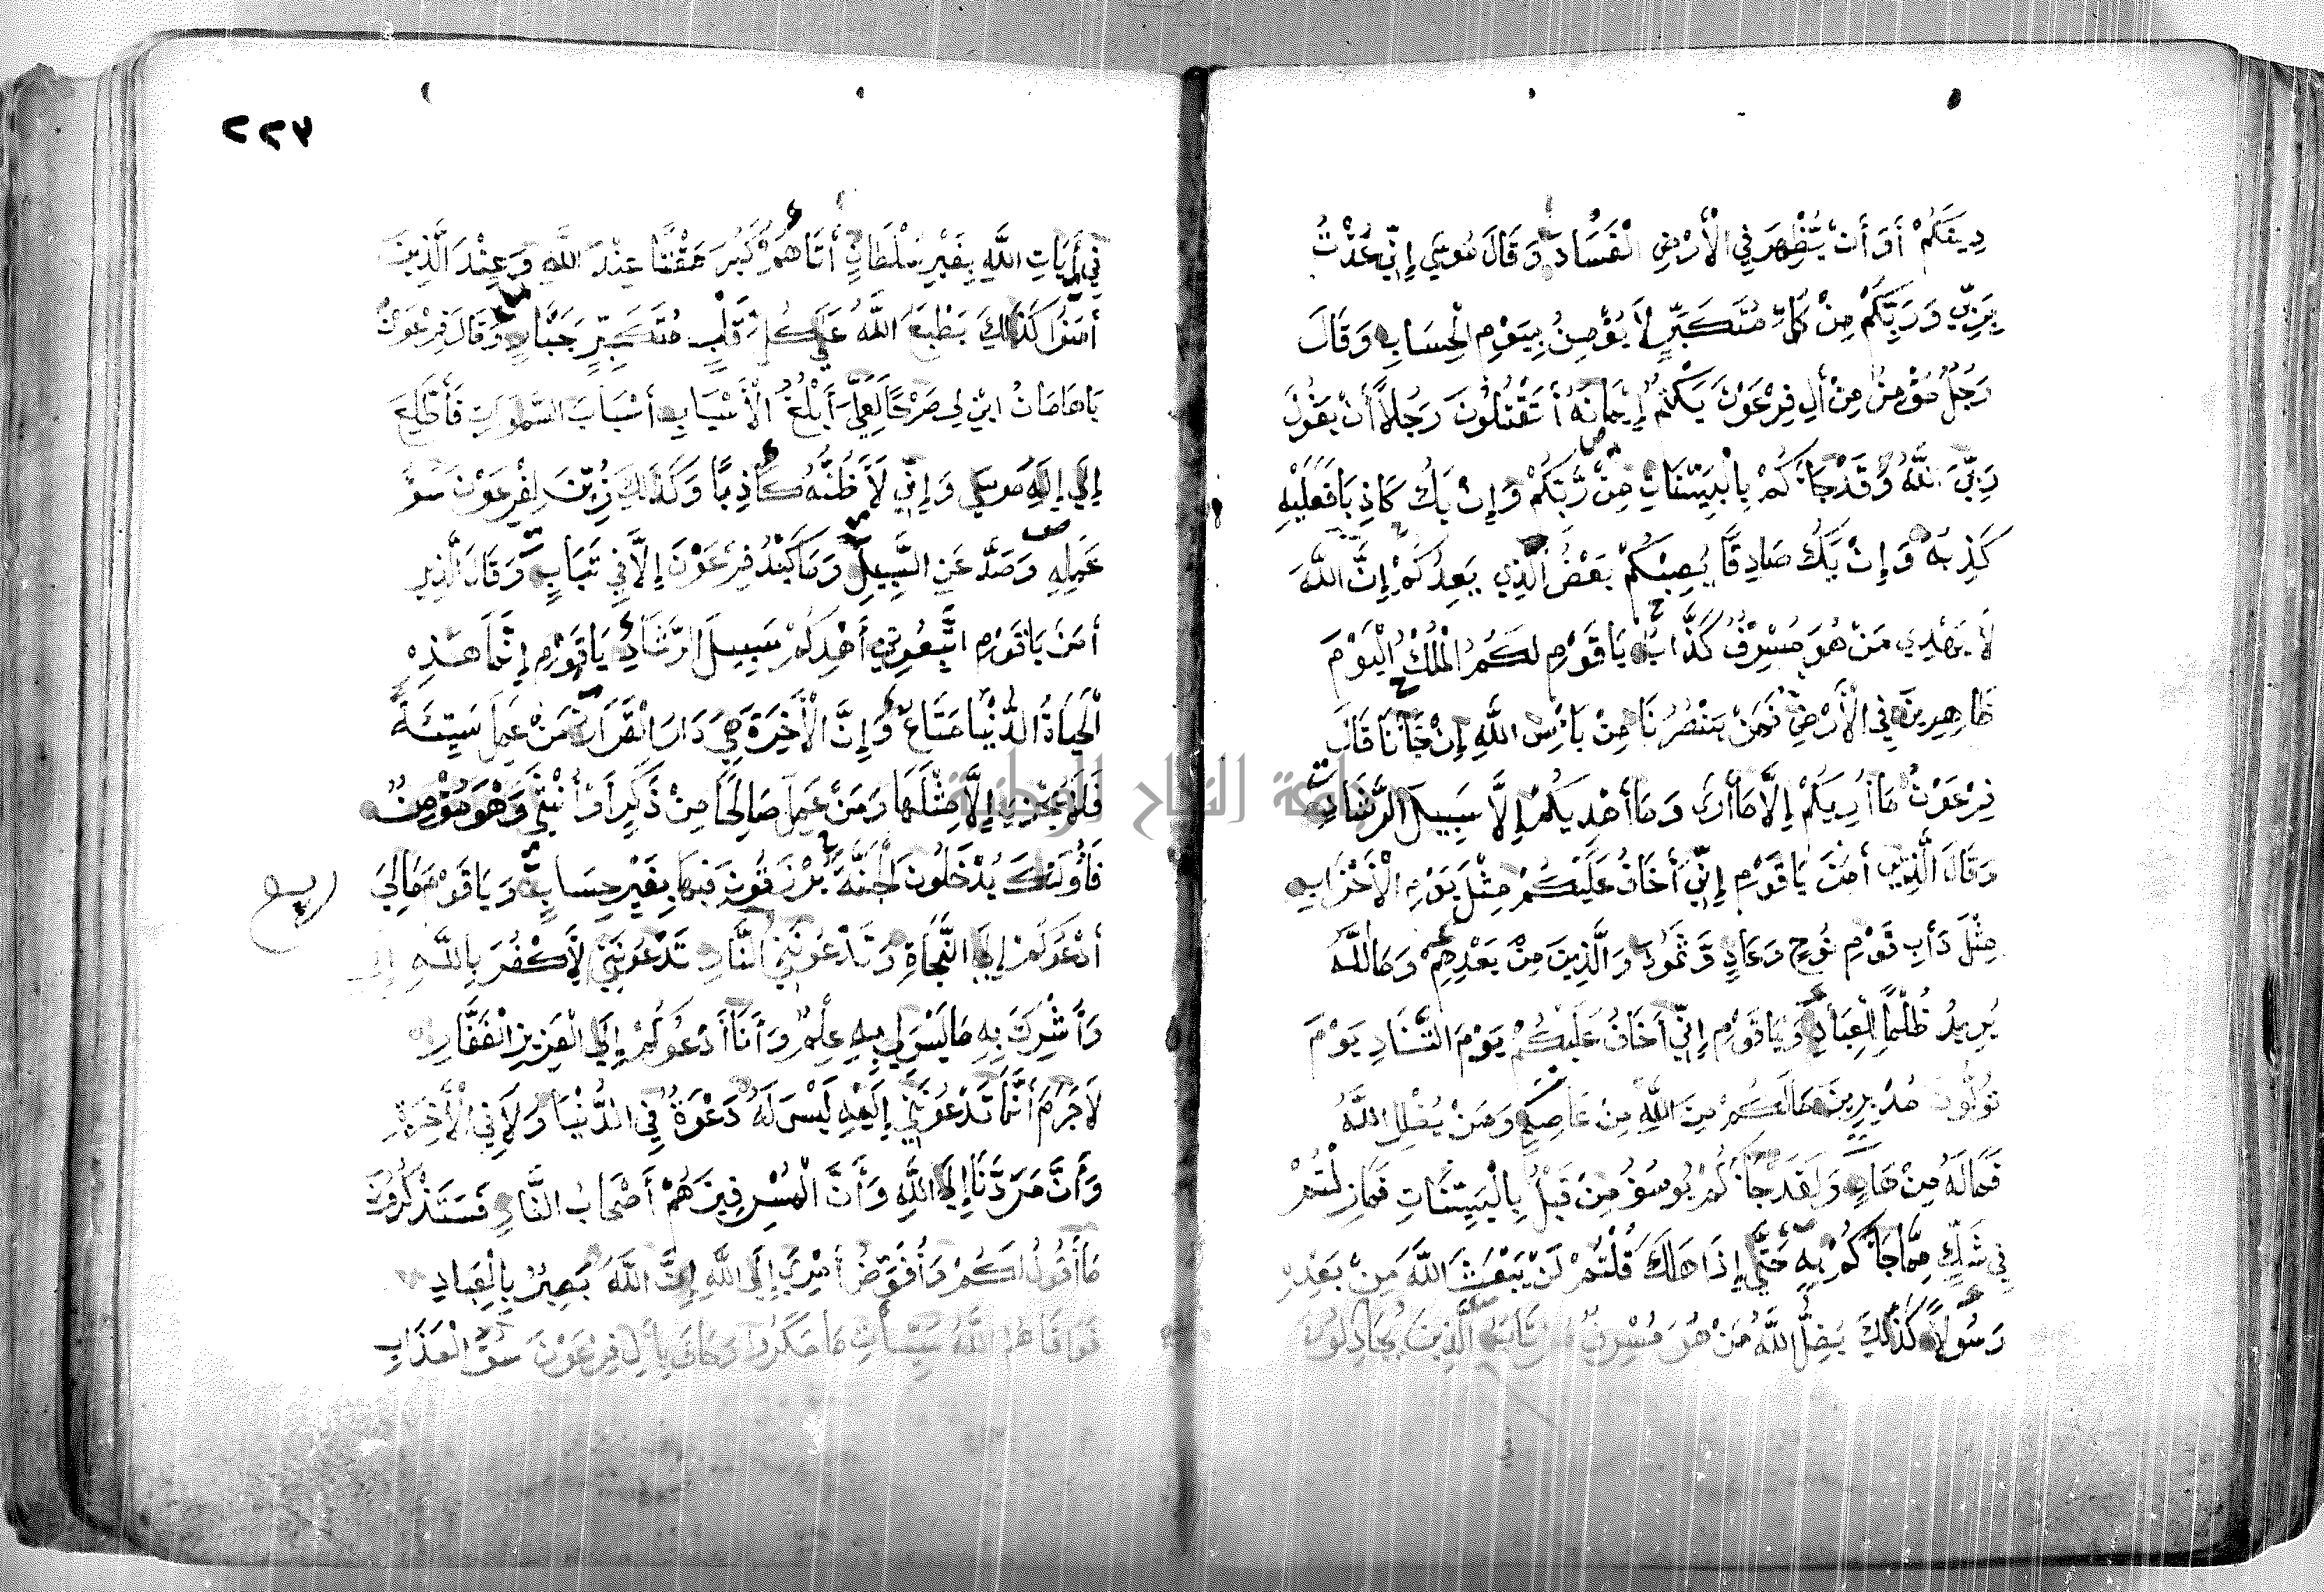 دِينَكُمْ أَوْ أَنْ يُّظْهِرَ فِي الْأَرْضِ الْفَسَادَ وَقَالَ مُوسَى إِنِّي عُذْتُ
بِرَبِّي وَرَبِّكُمْ مِنْ كُلِّ مُتَكَبِّرٍ لَا يُؤْمِنُ بِيَوْمِ الْحِسَابِ وَقَالَ
رَجُلٌ مُؤْمِنٌ مِنْ أَلِ فِرْعَوْنَ يَكْتُمُ إِيمَانَهُ أَتَقْتُلُونَ رَجُلًا أَنْ يَقُولَ
رَبِّيَ اللَّهُ وَقَدْ جَاءَكُمْ بِالْبَيِّنَاتِ مِنْ رَّبِّكُمْ وَإِنْ يَكُ كَاذِبًا فَعَلَيْهِ
كَذِبُهُ وَإِنْ يَكُ صَادِقًا يُصِبْكُمْ بَعْضُ الَّذِي يَعِدُكُمْ إِنَّ اللَّهَ
لَا يَهْدِي مَنْ هُوَ مُسْرِفٌ كَذَّابٌ يَا قَوْمِ لَكُمُ الْمُلْكُ الْيَوْمَ
ظَاهِرِينَ فِي الْأَرْضِ فَمَنْ يَنْصُرُنَا مِنْ بَأْسِ اللَّهِ إِنْ جَاءَنَا قَالَ
فِرْعَوْنُ مَا أُرِيكُمْ إِلَّا مَا أَرَى وَمَا أَهْدِيكُمْ إِلَّا سَبِيلَ الرَّشَادِ
وَقَالَ الَّذِي أَمَنَ يَا قَوْمِ إِنِّي أَخَافُ عَلَيْكُمْ مِثْلَ يَوْمِ الْأَحْزَابِ
مِثْلَ دَأْبِ قَوْمِ نُوحٍ وَعَادٍ وَّثَمُودَ وَالَّذِينَ مِنْ بَعْدِهِمْ وَمَا اللَّهُ
يُرِيدُ ظُلْمًا لِلْعِبَادِ وَيَا قَوْمِ إِنِّي أَخَافُ عَلَيْكُمْ يَوْمَ التَّنَادِ يَوْمَ
تُوَلُّونَ مُدْبِرِينَ مَا لَكُمْ مِنَ اللَّهِ مِنْ عَاصِمٍ وَمَنْ يُضْلِلِ اللَّهُ
فَمَا لَهُ مِنْ هَادٍ وَلَقَدْ جَاءَكُمْ يُوسُفُ مِنْ قَبْلُ بِالْبَيِّنَاتِ فَمَا زِلْتُمْ
فِي شَكٍّ مِمَّا جَاءَكُمْ بِهِ حَتَّى إِذَا هَلَكَ قُلْتُمْ لَنْ يَبْعَثَ اللَّهُ مِنْ بَعْدِهِ
رَسُولًا كَذَلِكَ يُضِلُّ اللَّهُ مَنْ هُوَ مُسْرِفٌ مُرْتَابٌ الَّذِينَ يُجَادِلُونَ
٢٢٣
فِي أَيَاتِ اللَّهِ بِغَيْرِ سُلْطَانٍ أَتَاهُمْ كَبُرَ مَقْتًا عِنْدَ اللَّهِ وَعِنْدَ الَّذِينَ
أَمَنُوا كَذَلِكَ يَطْبَعُ اللَّهُ عَلَى كُلِّ قَلْبِ مُتَكَبِّرٍ جَبَّارٍ وَقَالَ فِرْعَوْنُ
يَا هَامَانُ ابْنِ لِي صَرْحًا لَعَلِّي أَبْلُغُ الْأَسْبَابَ أَسْبَابَ السَّمَوَاتِ فَأَطَّلِعَ
إِلَى إِلَهِ مُوسَى وَإِنِّي لَأَظُنُّهُ كَاذِبًا وَكَذَلِكَ زُيِّنَ لِفِرْعَوْنَ سُوءُ
عَمَلِهِ وَصَدَّ عَنِ السَّبِيلِ وَمَا كَيْدُ فِرْعَوْنَ إِلَّا فِي تَبَابٍ وَقَالَ الَّذِي
أَمَنَ يَا قَوْمِ اتَّبِعُونِي أَهْدِكُمْ سَبِيلَ الرَّشَادِ يَا قَوْمِ إِنَّمَا هَذِهِ
الْحَيَاةُ الدُّنْيَا مَتَاعٌ وَإِنَّ الْأَخِرَةَ هِيَ دَارُ الْقَرَارِ مَنْ عَمِلَ سَيِّئَةً
فَلَا يُجْزَى إِلَّا مِثْلَهَا وَمَنْ عَمِلَ صَالِحًا مِنْ ذَكَرٍ أَوْ أُنْثَى وَهْوَ مُؤْمِنٌ
فَأُولَئِكَ يُدْخَلُونَ الْجَنَّةَ يُرْزَقُونَ فِيهَا بِغَيْرِ حِسَابٍ وَيَا قَوْمِ مَا لِيَ
ربع
أَدْعُوكُمْ إِلَى النَّجَاةِ وَتَدْعُونَنِي إِلَى النَّارِ تَدْعُونَنِي لِأَكْفُرَ بِاللَّهِ
وَأُشْرِكَ بِهِ مَا لَيْسَ لِي بِهِ عِلْمٌ وَأَنَا أَدْعُوكُمْ إِلَى الْعَزِيزِ الْغَفَّارِ
لَا جَرَمَ أَنَّمَا تَدْعُونَنِي إِلَيْهِ لَيْسَ لَهُ دَعْوَةٌ فِي الدُّنْيَا وَلَا فِي الْأَخِرَةِ
وَأَنَّ مَرَدَّنَا إِلَى اللَّهِ وَأَنَّ الْمُسْرِفِينَ هُمْ أَصْحَابُ النَّارِ فَسَتَذْكُرُونَ
مَا أَقُولُ لَكُمْ وَأُفَوِّضُ أَمْرِي إِلَى اللَّهِ إِنَّ اللَّهَ بَصِيرٌ بِالْعِبَادِ
فَوَقَاهُ اللَّهُ سَيِّئَاتِ مَا مَكَرُوا وَحَاقَ بِأَلِ فِرْعَوْنَ سُوءُ الْعَذَابِ
جامعة النجاح الوطنية